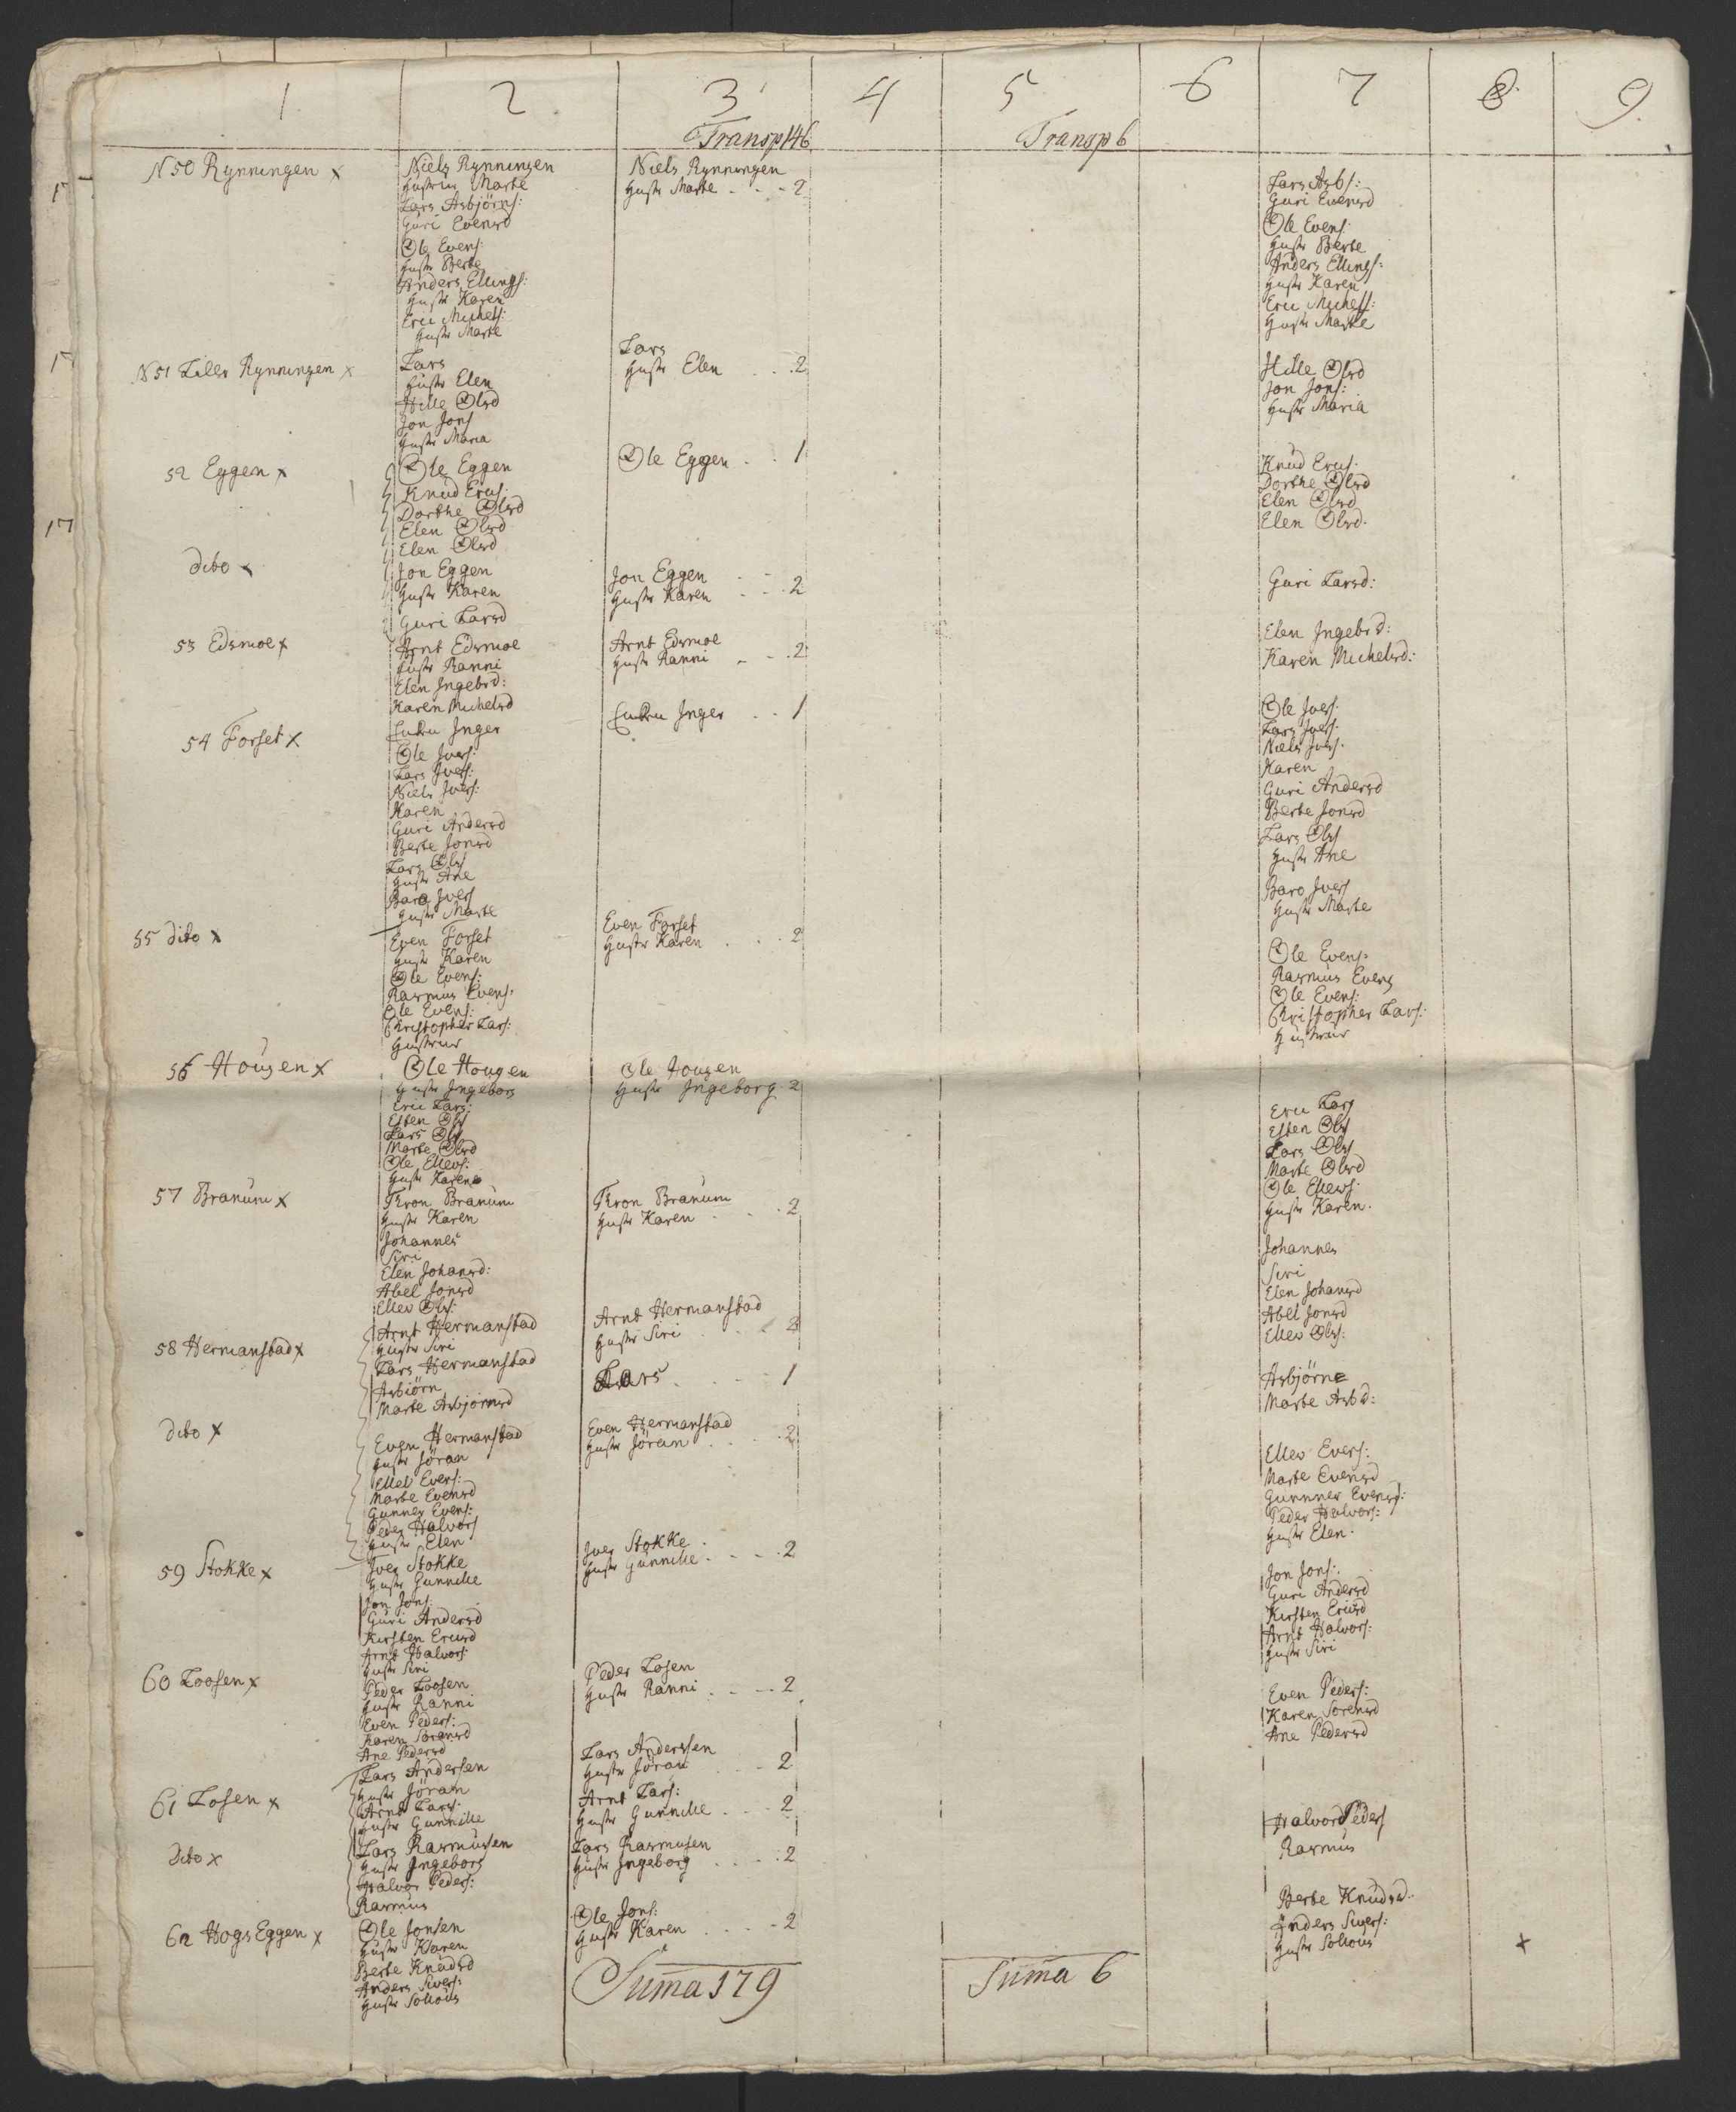 1 2 3 4 5 6 7 8 9
Transp 146 Transp 6
N 50 Rynningen x
Niels Rynningen
Hustru Marte
Lars Asbjörns:
Guri Evensd
Ole Evens:
Hustr Berte
Anders Ellings:
Hustr Karen
Eric Michels:
Hustr Marte
Niels Rynningen
Hustr Marte - - - 2
Lars Asbs:
Guri Evensd
Ole Evens:
Hustr Berte
Anders Ellings:
Hustr Karen
Eric Michels:
Hustr Marte
N 51 Lille Rynningen x
Lars
Hustr Elen
Hille Olsd
Jon Jons
Hustr Maria
Lars
Hustr Elen . . . 2
Hille Olsd
Jon Jons:
Hustr Maria
52 Eggen x
Ole Eggen
Knud Erics:
Dorthe Olsd
Elen Olsd
Elen Olsd
Ole Eggen . . 1
Knud Erics:
Dorthe Olsd
Elen Olsd
Elen Olsd.
dito x
Jon Eggen
Hustr Karen
Guri Larsd
Jon Eggen
Hustr Karen - - . 2
Guri Larsd:
53 Edsmoe x
Arnt Edsmoe
Hustr Ranni
Elen Ingebrd:
Karen Michelsd
Arnt Edsmoe
Hustr Ranni - - . 2
Elen Ingebrd:
Karen Michelsd:
54 Forset x
Enken Inger
Ole Ivers:
Lars Ivers:
Niels Ivers:
Karen
Guri Andersd
Berte Jonsd
Lars Ols
Hustr Ane
Baro Ivers
Hustr Marte
Enken Inger . . 1
Ole Ivers:
Lars Ivers:
Niels Ivers.
Karen
Guri Andersd
Berte Jonsd
Lars Ols
Hustr Ane
Baro Ivers
Hustr Marte
55 dito x
Even Forset
Hustr Karen
Ole Evens:
Rasmus Evens.
Ole Evens:
Christopher Lars:
Hustruer
Even Forset
Hustr Karen . . . 2
Ole Evens.
Rasmus Evens
Ole Evens:
Christopher Lars:
Hustruer
56 Hougen x
Ole Hougen
Hustr Ingeborg
Eric Lars:
Esten Ols
Lars Ols
Marte Olsd
Ole Ellevs:
Hustr Karen
Ole Hougen
Hustr Ingeborg . 2
Eric Lars
Esten Ols
Lars Ols
Marte Olsd
Ole Ellevs:
Hustr Karen.
57 Branum x
Thron Branum
Hustr Karen
Johannes
Siri
Elen Johansd:
Abel Jonsd
Ellev Ols:
Thron Branum
Hustr Karen . . . 2
Johannes
Siri
Elen Johansd
Abel Jonsd
Ellev Ols:
58 Hermanstad x
Arnt Hermanstad
Hustr Siri
Lars Hermanstad
Asbiörn
Marte Asbjörnsd
Arnt Hermanstad
Hustr Siri . . . 2
Lars . . . . 1
Asbjörn
Marte Asbd:
dito x
Even Hermanstad
Hustr Jöran
Ellev Evens:
Marte Evensd
Gunner Evens:
Peder Halvors
Hustr Elen
Even Hermanstad
Hustr Jöran . . . 2
Ellev Evens:
Marte Evensd
Gunnner Evensd:
Peder Halvors:
Hustr Elen.
59 Stokke x
Iver Stokke
Hustr Gunnille
Jon Jons:
Guri Andersd
Kirsten Ericsd
Arnt Halvors:
Hustr Siri
Iver Stokke .
Hustr Gunnille . - - . 2
Jon Jons:
Guri Andersd
Kirsten Ericsd
Arnt Halvors:
Hustr Siri
60 Loosen x
Peder Loosen
Hustr Ranni
Even Peders:
Karen Sorensd
Ane Pedersd
Peder Losen
Hustr Ranni . - - - 2
Even Peders:
Karen Sorensd
Ane Pedersd
61 Losen x
Lars Andersen
Hustr Jöran
Arnt Lars:
Hustr Gunnille
Lars Anderssen
Hustr Jöran . . - 2
Arnt Lars:
Hustr Gunnille . - - 2
dito x
Lars Rasmussen
Hustr Ingeborg
Halvor Peders:
Rasmus
Lars Rasmusen
Hustr Ingeborg . . - . 2
Halvor Peders
Rasmus
62 Hogs Eggen x
Ole Jonsen
Hustr Karen
Berte Knudsd
Anders Sivers:
Hustr Solvous
Ole Jons:
Hustr Karen . . . - 2
Berte Knudsd.
Anders Sivers:
Hustr Solvous
x
Suma 179 Suma 6